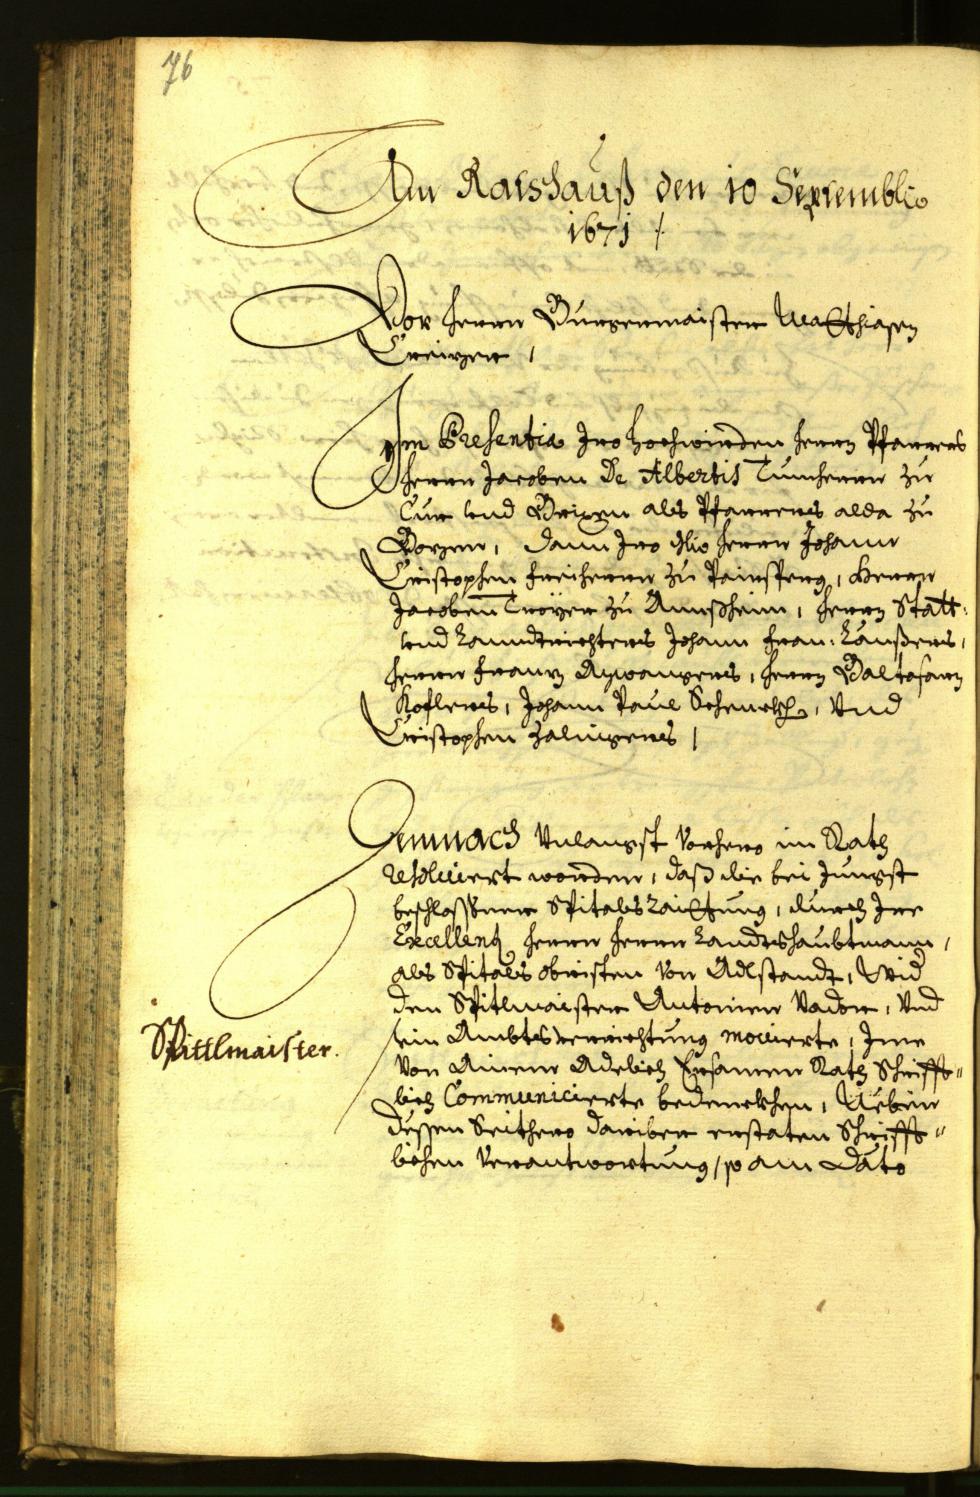 76
Am Ratshauß den 10 Septembris
1671 /
Vor herrn Burgermaister Matthiasen
Creizer /
In Presentia Iro hochwirden herrn Pfarrers
herrn Jacoben De Albertis Tumherrn zu
Cur und Brixen als Pfarrers alda zu
Bozen, dann Iro herrn Johann
Cristophen freiherrn zu Painsperg, Herrn
Jacoben Troyer zu Aunßheim, herrn Statt:
und Lanndtrichters Johann Fran: Laußers,
herrn Franz Aywangers, herrn Baltasarn
Koflers, Johann Paul Schenckh, und
Cristophen Zalingers /
Demnach unlangst vorhero im Rath
resoluiert worden, daß die bei jungst
beschlossner Spitals Raittung, durch Ire
Excellenz herrn herrn Landtshaubtmann,
als Spitals obristen von Adlstandt, wid
den Spitlmaister Antonien Vador, und
sein Ambtsverrichtung mouierte, Ime
von ainem Adelich Ersamen Rath schrifft-
lich Communicierte bedenckhen, Ueber
dessen Seithero dariber erstaten Schrifft-
lichen Verantwortung, so am Dato
Spittlmaister.